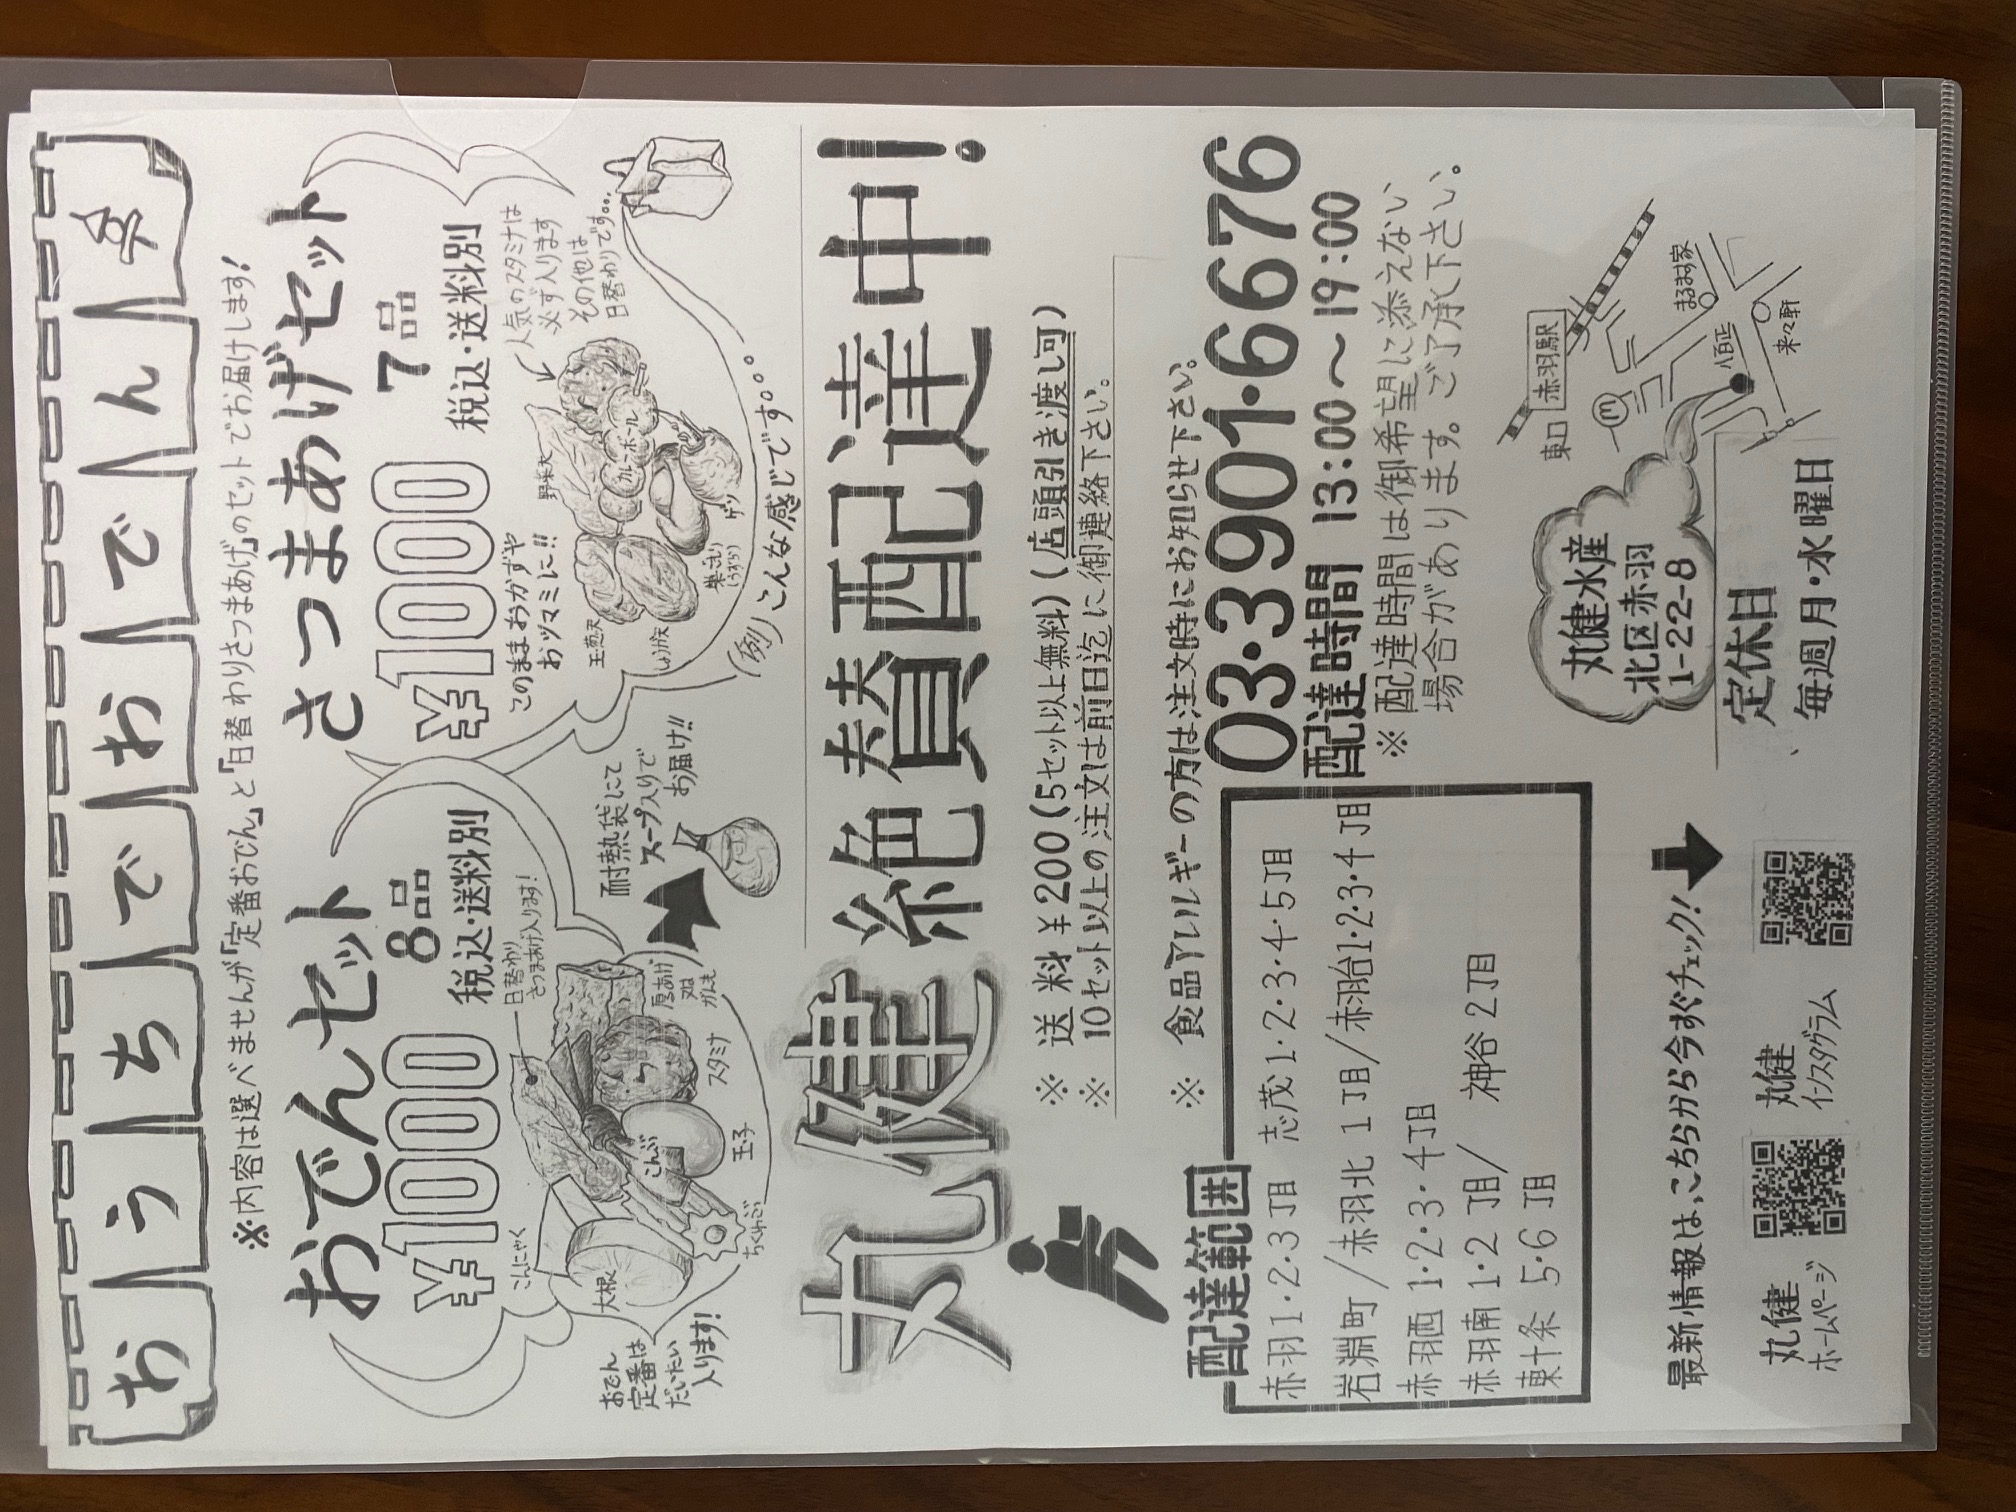 おうちでおでん
※内容は選べませんが「定番おでん」と「日替わりさつまあげ」のセットでお届けします!
おでんセット
¥1000 8品
税込・送料別
日替わり
さつまあげ入ります!
こんにゃく
厚あげ
又は
がんも
大根
こんぶ
スタミナ
玉子
ちくわぶ
おでん
定番は
だいたい
入ります!
耐熱袋にて
スープ入りで
お届け!!
さつまあげセット
¥1000 7品
税込・送料別
このままおかずや
おツマミに!!
人気のスタミナは
必ず入ります
その他は
日替わりです。。。
野菜天
玉葱天
カレーボール
しょうが天
ゲソ
(例)こんな感じです。。。
丸健 絶賛配達中!
※ 送料¥200(5セット以上無料)(店頭引き渡し可)
※ 10セット以上の注文は前日迄に御連絡下さい。
※ 食品アレルギーの方は注文時にお知らせ下さい。
配達範囲
赤羽1・2・3丁目 志茂1・2・3・4・5丁目
岩淵町/赤羽北 1丁目/赤羽台1・2・3・4丁目
赤羽西 1・2・3・4丁目
赤羽南 1・2丁目/ 神谷2丁目
東十条 5・6丁目
03・3901・6676
配達時間 13:00〜19:00
※配達時間は御希望に添えない
場合があります。ご了承下さい。
丸健水産
北区赤羽
1-22-8
東口
赤羽駅
m
まるます家
八百正
来々軒
定休日
毎週月・水曜日
最新情報は、こちらから今すぐチェック!
丸健
ホームページ
丸健
インスタグラム